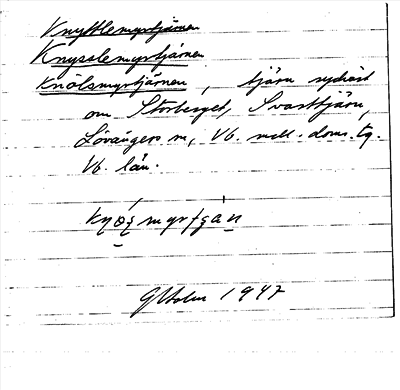 Knyttlemyrtjärnen
Knysslemyrtjärnen
Knölsmyrtjärnen, tjärn sydväst
om Storberget, Svarttjärn,
Lövångers sn, Vb. mell. doms. tg.
Vb. län.
GHolm 1947